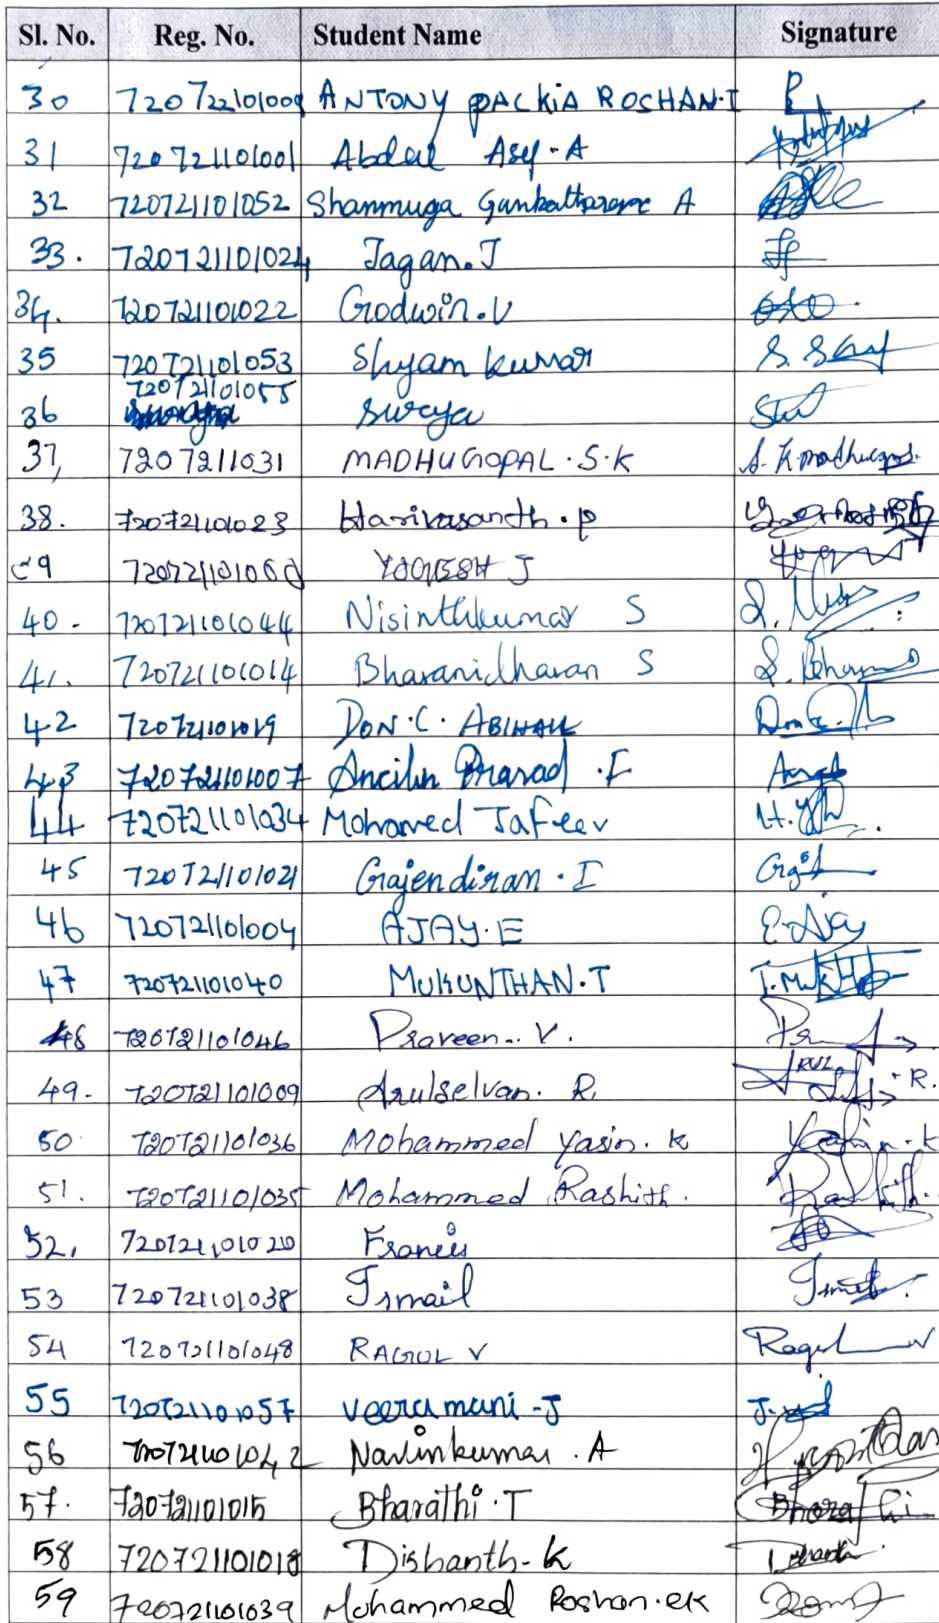 Sl. No. Reg. No. Student Name Signature
30 720722101009 ANTONY PACKIA ROSHAN.I
31 720721101001 Abdul Asif-A
32 720721101052 Shanmuga A
33. 720721101024 Jagan.J
34. 720721101022 Godwin.V
35 720721101053 Shyam kumar
720721101055
36 surya
37, 7207211031 MADHUGOPAL.S.K S.K.madhugopal
38. 720721101023 Harivasanth.P
39 720721101060 YOGESH J
40. 720721101044 Nisinthkumar S
41. 720721101014 Bharanidharan S
42 720721101019 DON.C.ABIHAIL
43 720721101007 Ancilin Prasad .F
44 720721101034 Mohamed Jafeer
45 720721101021 Gajendiran.I
46 720721101004 AJAY.E E.Ajay
47 720721101040 MUKUNTHAN.T
48 720721101046 Praveen.. V.
49. 720721101009 Arulselvan. R.
50 720721101036 Mohammed Yasin. k Yasin.k
51. 720721101035 Mohammed Rashith. Rashith.
52. 720721101020 Francis
53 720721101038 Ismail
54 720721101048 RAGUL V Ragul V
55 720721101057 veeramani-J
56 720721101042 Navinkumar.A
57. 720721101015 Bharathi.T Bharathi
58 720721101018 Dishanth-k
59 720721101039 Mohammed Roshan.ek